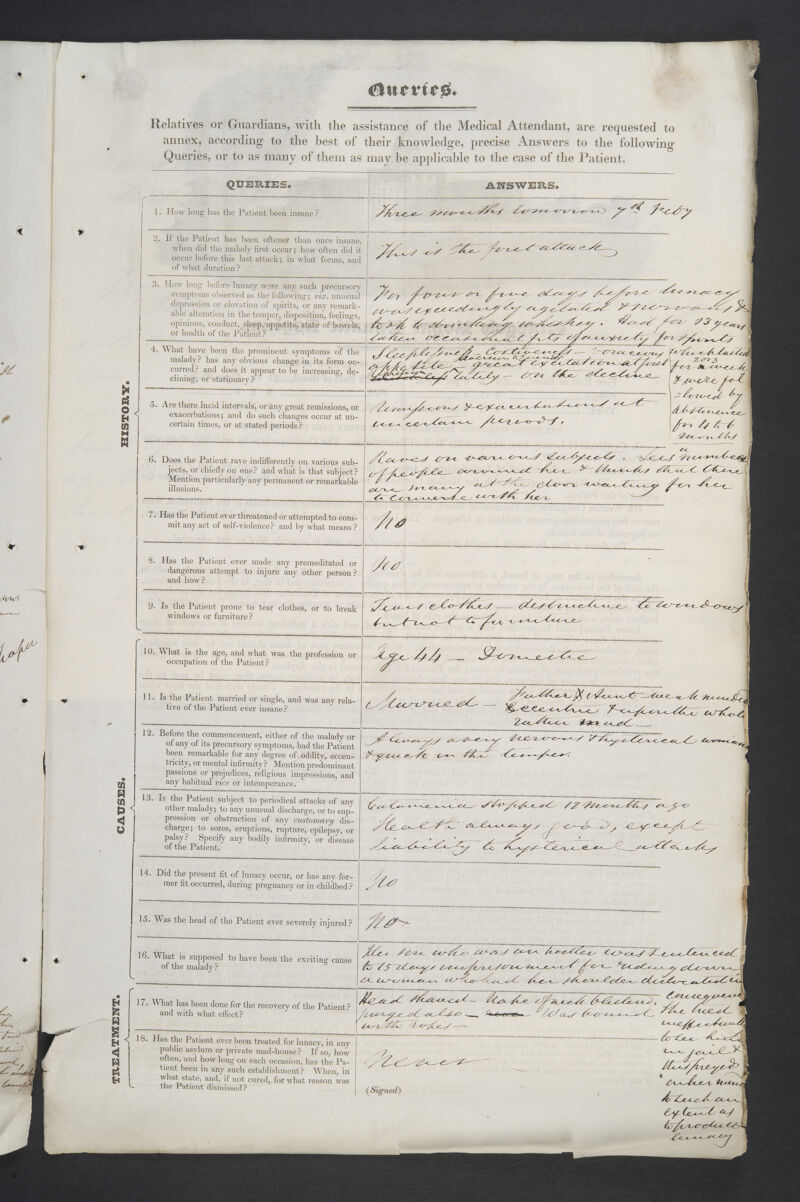 Queries.
Relatives or Guardians, with the assistance of the Medical Attendant, are requested to
annex, according to the best of their knowledge, precise Answers to the following
Queries, or to as many of them as may be applicable to the case of the Patient.
QUERIES.
ANSWERS.
HISTORY.
1. How long has the Patient been insane?
Three months tomorrow 7th Feby
2. If the Patient has been oftener than once insane,
when did the malady first occur; how often did it
occur before this last attack; in what forms, and
of what duration?
This is the first attack
3. How long before lunacy were any such precursory
symptoms observed as the following; viz. unusual
depression or elevation of spirits, or any remark-
able alteration in the temper, disposition, feelings,
opinions, conduct, sleep, appetite, state of bowels,
or health of the Patient?
For four or five days before lunacy
was exceedingly agitated & nervous &
took to drinking whiskey. Had for 13 years
taken occasional fits of anxiety for spirits
which lasted
for 2 or 3
week
& were fol
=lowed by
abstinence
for 4 to 6
months
4. What have been the prominent symptoms of the
malady? has any obvious change in its form oc-
curred? and does it appear to be increasing, de-
clining, or stationary?
Sleeplessness, Costiveness – voracious
appetite – great excitation at first
lately – on the decline
5. Are there lucid intervals, or any great remissions, or
exacerbations; and do such changes occur at un-
certain times, or at stated periods?
Remissions & exacerbations at
uncertain periods.
6. Does the Patient rave indifferently on various sub-
jects, or chiefly on one? and what is that subject?
Mention particularly any permanent or remarkable
illusions.
Raves on various subjects. Sees a number
of people around her & thinks that there
are many at the door waiting for her
to converse with her
7. Has the Patient ever threatened or attempted to com-
mit any act of self-violence? and by what means?
No
8. Has the Patient ever made any premeditated or
dangerous attempt to injure any other person?
and how?
No
9. Is the Patient prone to tear clothes, or to break
windows or furniture?
Tears clothes – destructive to windows
but not to furniture
CAUSES.
10. What is the age, and what was the profession or
occupation of the Patient?
Age 44 – Domestic
11. Is the Patient married or single, and was any rela-
tive of the Patient ever insane?
Married – Father & Aunt weak minded
eccentric & upon the whole
rather mad
12. Before the commencement, either of the malady or
of any of its precursory symptoms, had the Patient
been remarkable for any degree of oddity, eccen-
tricity, or mental infirmity? Mention predominant
passions or prejudices, religious impressions, and
any habitual vice or intemperance.
Always a very nervous & hysterical woman
& quick in the temper.
13. Is the Patient subject to periodical attacks of any
other malady; to any unusual discharge, or to sup-
pression or obstruction of any customary dis-
charge; to sores, eruptions, rupture, epilepsy, or
palsy? Specify any bodily infirmity, or disease
of the Patient.
Catamenia stopped 12 months ago
Health always good, except
liability to hysterical attacks
14. Did the present fit of lunacy occur, or has any for-
mer fit occurred, during pregnancy or in childbed?
No
15. Was the head of the Patient ever severely injured?
No
16. What is supposed to have been the exciting cause
of the malady?
Her son who was an hostler was sentenced
to 15 days imprisonment for riding down
a woman who had her shoulder dislocated in
consequence
She tried
ineffectually
to see him
in jail &
this preyed
on her mind
to such an
extent as
to produce
lunacy
TREATMENT.
17. What has been done for the recovery of the Patient?
and with what effect?
Head shaved – Nape of neck blistered.
purged also – Was bound
with ropes –
18. Has the Patient ever been treated for lunacy, in any
public asylum or private mad-house? If so, how
often, and how long on each occasion, has the Pa-
tient been in any such establishment? When, in
what state, and, if not cured, for what reason was
the Patient dismissed?
Never
(Signed)